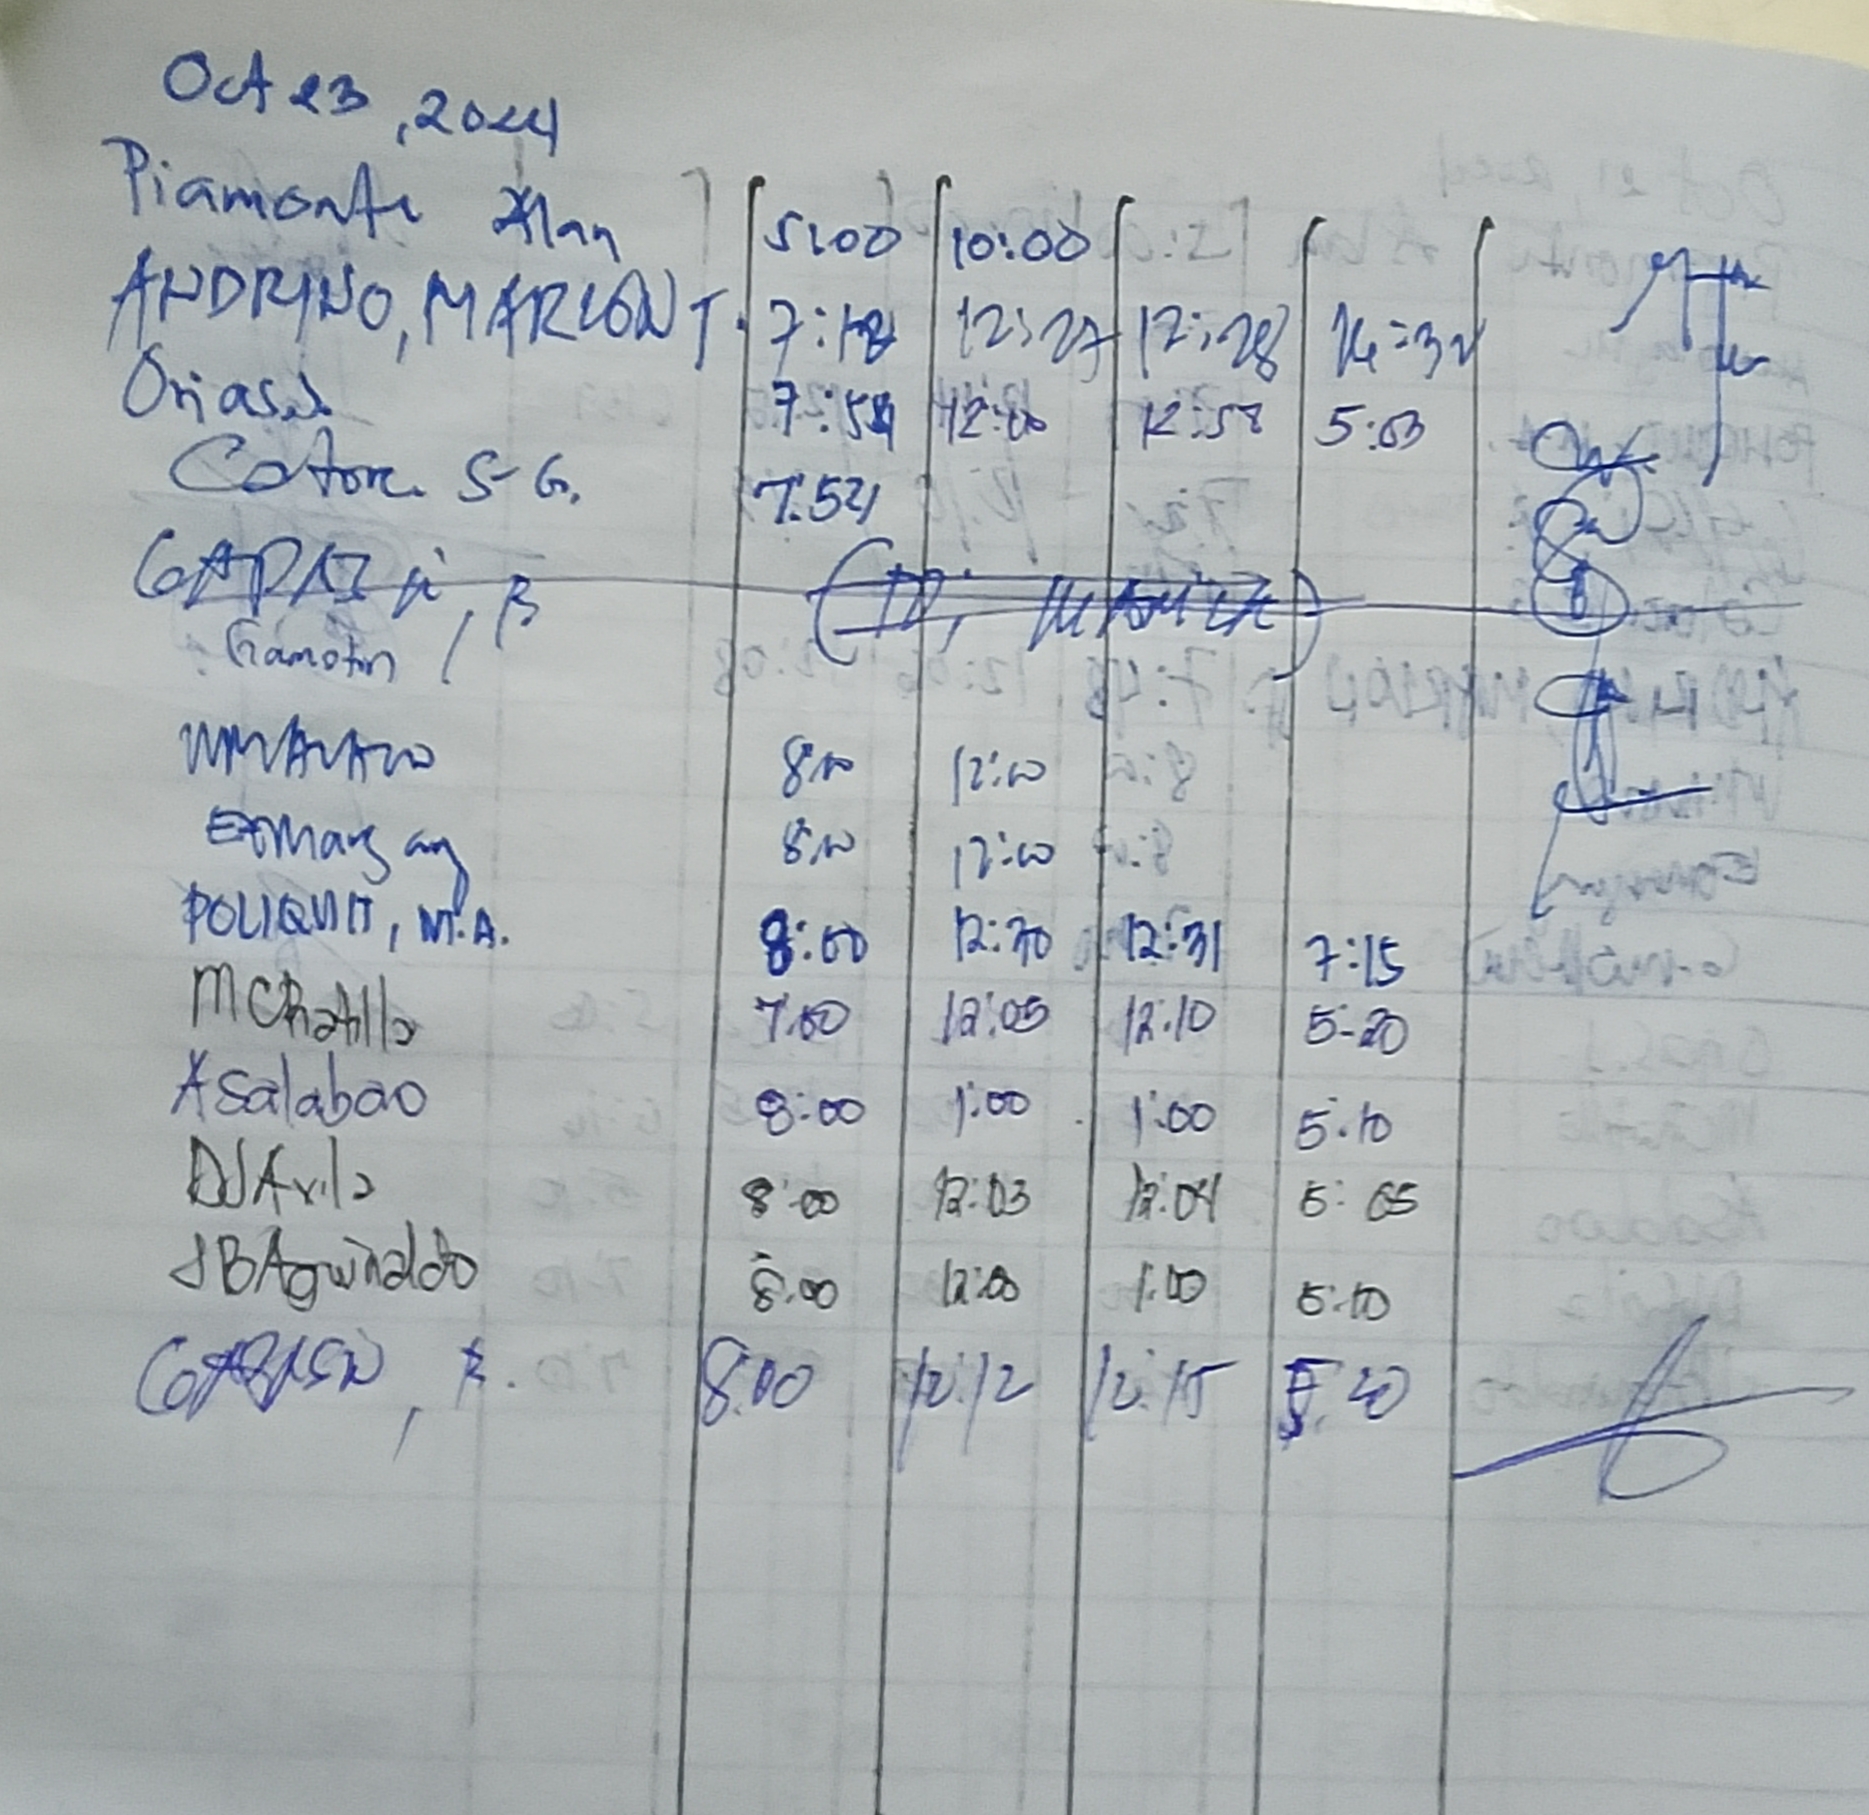 Oct 23, 2024
Piamonte Alan 5:00 10:00
ANDRINO, MARLON T. 7:18 12:27 12:28
Orias.J. 7:54 12:00 12:58 5:03
Catore S-G. 7:54
Gamotin
8:00 12:00
8:00 12:00
POLIQUIT, M.A. 8:00 12:30 12:31 7:15
MCRatilla 7:00 12:05 12:10 5:20
ASalabao 8:00 1:00 1:00 5:10
DJAvila 8:00 12:03 12:04 5:05
JBAguinaldo 8:00 12:00 1:00 5:10
8:00 12:12 12:15 5:20